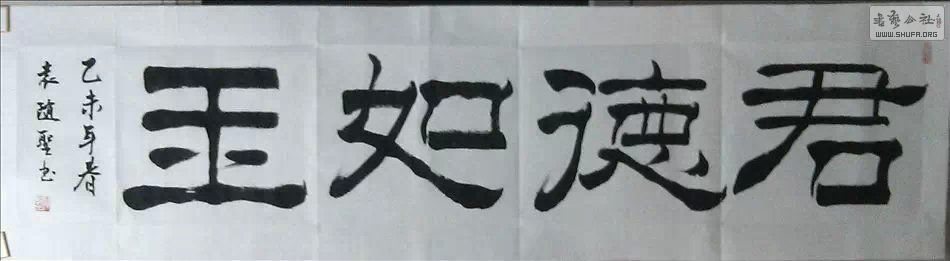 君德如玉
乙未年春
袁随圣书
书艺公社
WWW.SHUFA.ORG